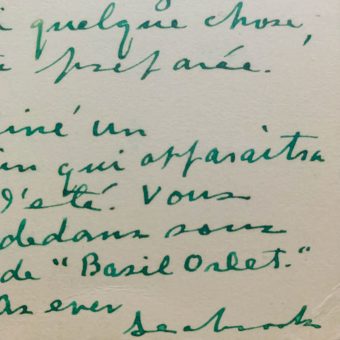 quelque chose,
préparée.
iné un
in qui apparaitra
d'eté. Vous
dedans sous
de "Basil Orlet."
As ever
Seabrook